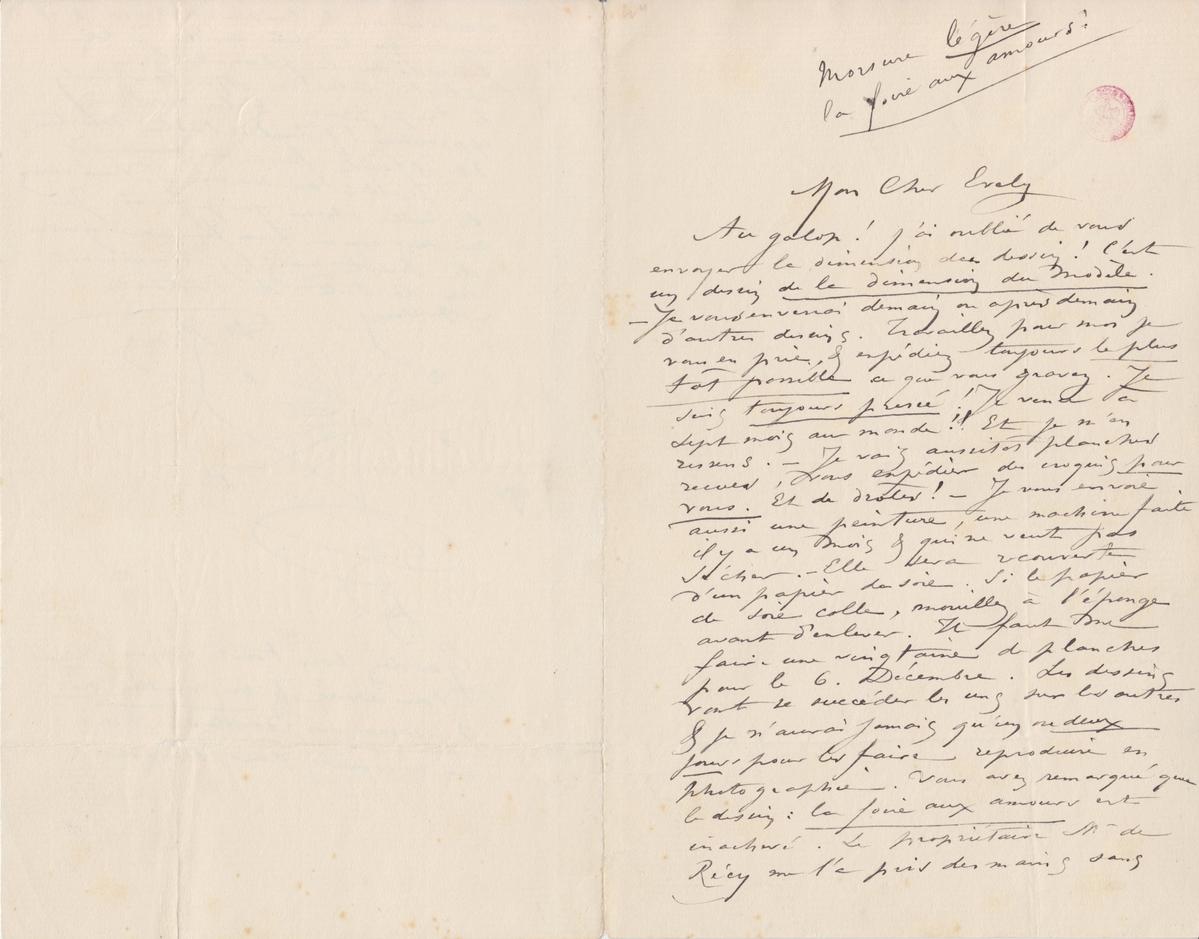 Morsure légère
la foire aux amours!
Mon Cher Evely
Au galop! j'ai oublié de vous
envoyer la dimension des dessin! C'est
un dessin de la dimension du Modèle.
– Je vous enverrai demain ou après demain
d'autres dessins. Travaillez pour moi je
vous en prie, & expédiez toujours le plus
tôt possible ce que vous gravez. Je
suis toujours pressé! Je vends à
sept mois au monde!! Et je m'en
ressens. – Je vais aussitôt planches
recues, vous expédier des croquis pour
vous. Et de drôles! – Je vous envoie
aussi une peinture, une machine faite
il y a un mois & qui ne veut pas
sécher. – Elle sera recouverte
d'un papier de soie. Si le papier
de soie colle, mouillez à l'éponge
avant d'enlever. Il faut me
faire une vingtaine de planches
pour le 6. Décembre. Les dessins
vont se succéder les uns sur les autres
& je n'aurai jamais qu'un ou deux
jours pour les faire reproduire en
photographie. Vous avez remarqué que
le dessin: la foire aux amours est
inachevé. Le propriétaire Mr de
Récy me l'a pris des mains sans